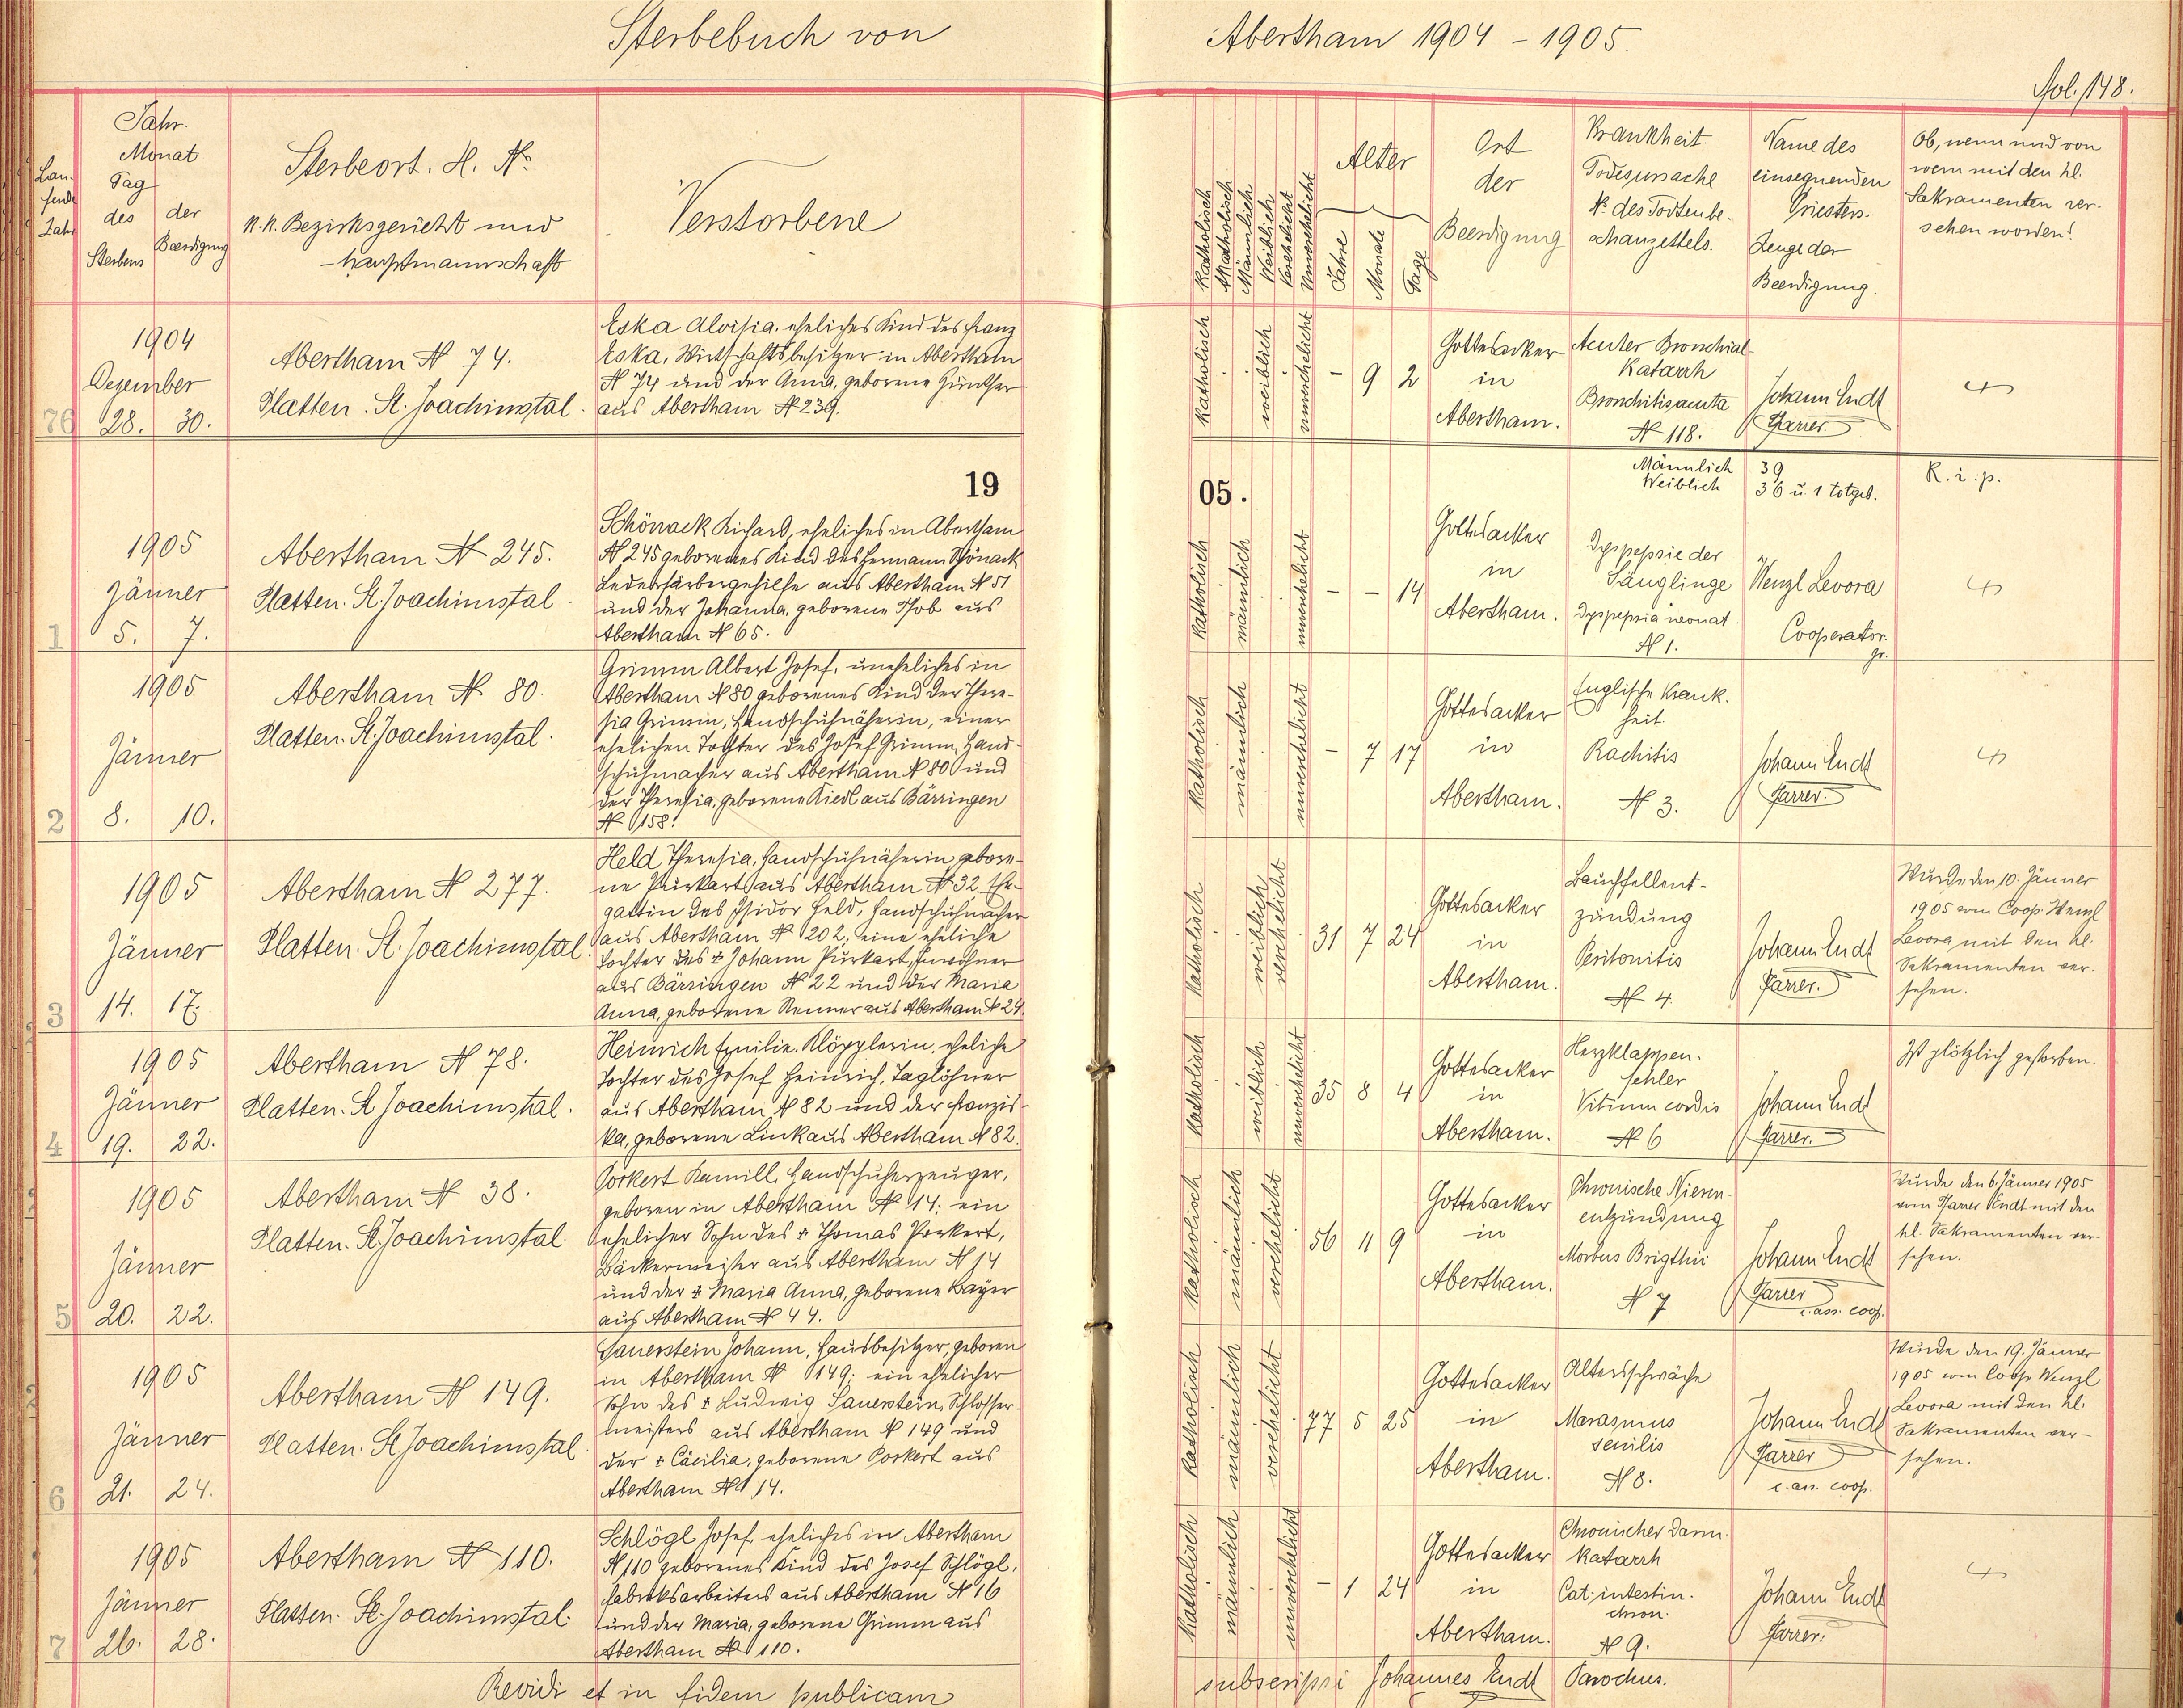 Sterbebuch von Abertham 1904 - 1905.
Fol. 148.
Laufende Zahl
Jahr.
Monat
Tag
des Sterbens
der Beerdigung
Sterbeort. H. No
k.k. Bezirksgericht und
-hauptmannschaft
Verstorbene
Katholisch
Akatholisch
Männlich
Weiblich
Verehelicht
Unverehelicht
Alter
Jahre
Monate
Tage
Ort
der
Beerdigung
Krankheit.
Todesursache
No des Todtenbe-
schauzettels.
Name des
einsegnenden
Priesters.
Zeuge der
Beerdigung.
Ob, wenn und von
wem mit den hl.
Sakramenten ver-
sehen worden?
76
1904
Dezember
28. 30.
Abertham N 74.
Platten. St. Joachimstal.
Eska Aloisia, eheliches Kind des Franz
Eska, Wirtschaftsbesitzer in Abertham
N 74 und der Anna, geborene Günther
aus Abertham N 239.
katholisch
weiblich
unverehelicht
- 9 2
Gottesacker
in
Abertham.
Acuter Bronchial-
Katarrh
Bronchitis acuta
N 118.
Johann Endt
Pfarrer.
19 05.
Männlich 39
Weiblich 36 u. 1 totgeb.
R. i. p.
1
1905
Jänner
5. 7.
Abertham N 245.
Platten. St. Joachimstal.
Schönack Richard, eheliches in Abertham
N 245 geborenes Kind des Hermann Schönack
Lederfärbergehilfe aus Abertham N 51
und der Johanna, geborene Hob aus
Abertham N 65.
katholisch
männlich
unverehelicht
- - 14
Gottesacker
in
Abertham.
Dyspepsie der
Säuglinge
Dyspepsia neonat.
N 1.
Wenzl Levora
Cooperator.
2
1905
Jänner
8. 10.
Abertham N 80.
Platten. St. Joachimstal.
Grimm Albert Josef, uneheliches in
Abertham N 80 geborenes Kind der There-
sia Grimm, Handschuhnäherin, einer
ehelichen Tochter des Josef Grimm, Hand-
schuhmacher aus Abertham N 80 und
der Theresia, geborene Riedl aus Bärringen
N 158.
katholisch
männlich
unverehelicht
- 7 17
Gottesacker
in
Abertham.
Englische Krank-
heit.
Rachitis
N 3.
Johann Endt
Pfarrer.
3
1905
Jänner
14. 17.
Abertham N 277.
Platten. St. Joachimstal.
Held Theresia, Handschuhnäherin, gebore-
ne Purkart aus Abertham N 32, Ehe-
gattin des Isidor Held, Handschuhmacher
aus Abertham N 202, eine eheliche
Tochter des + Johann Purkart, Inwohner
aus Bärringen N 22 und der Maria
Anna, geborene Renner aus Abertham N 24.
katholisch
weiblich
verehelicht
31 7 24
Gottesacker
in
Abertham.
Bauchfellent-
zündung
Peritonitis
N 4.
Johann Endt
Pfarrer.
Wurde den 10. Jänner
1905 vom Coop. Wenzl
Levora mit den hl.
Sakramenten ver-
sehen.
4
1905
Jänner
19. 22.
Abertham N 78.
Platten. St Joachimstal.
Heinrich Emilie, Klöpplerin, eheliche
Tochter des Josef Heinrich, Taglöhner
aus Abertham N 82 und der Franzis-
ka, geborene Link aus Abertham N 82.
katholisch
weiblich
unverehelicht
35 8 4
Gottesacker
in
Abertham.
Herzklappen-
fehler
Vitium cordis
N 6
Johann Endt
Pfarrer.
Ist plötzlich gestorben.
5
1905
Jänner
20. 22.
Abertham N 38.
Platten. St. Joachimstal.
Porkert Kamill, Handschuherzeuger,
geboren in Abertham N 14; ein
ehelicher Sohn des + Thomas Porkert,
Bäckermeister aus Abertham N 14
und der + Maria Anna, geborene Bayer
aus Abertham N 44.
katholisch
männlich
verehelicht
56 11 9
Gottesacker
in
Abertham.
Chronische Nieren-
entzündung
Morbus Brigthii
N 7
Johann Endt
Pfarrer
c. ass. coop.
Wurde den 6. Jänner 1905
vom Pfarrer Endt mit den
hl. Sakramenten ver-
sehen.
6
1905
Jänner
21. 24.
Abertham N 149.
Platten. St Joachimstal.
Sauerstein Johann, Hausbesitzer, geboren
in Abertham N 149; ein ehelicher
Sohn des + Ludwig Sauerstein, Schlosser-
meisters aus Abertham N 149 und
der + Cäcilia, geborene Porkert aus
Abertham N 14.
katholisch
männlich
verehelicht
77 5 25
Gottesacker
in
Abertham.
Altersschwäche
Marasmus
senilis
N 8.
Johann Endt
Pfarrer
c. ass. coop.
Wurde den 19. Jänner
1905 vom Coop. Wenzl
Levora mit den hl.
Sakramenten ver-
sehen.
7
1905
Jänner
26. 28.
Abertham N 110.
Platten. St. Joachimstal.
Schlögl Josef, eheliches in Abertham
N 110 geborenes Kind des Josef Schlögl,
Fabriksarbeiters aus Abertham N 16
und der Maria, geborene Grimm aus
Abertham N 110.
katholisch
männlich
unverehelicht
- 1 24
Gottesacker
in
Abertham.
Chronischer Darm-
katarrh
Cat. intestin.
chron.
N 9.
Johann Endt
Pfarrer.
Revidi et in fidem publicam subscripsi Johannes Endt Parochus.